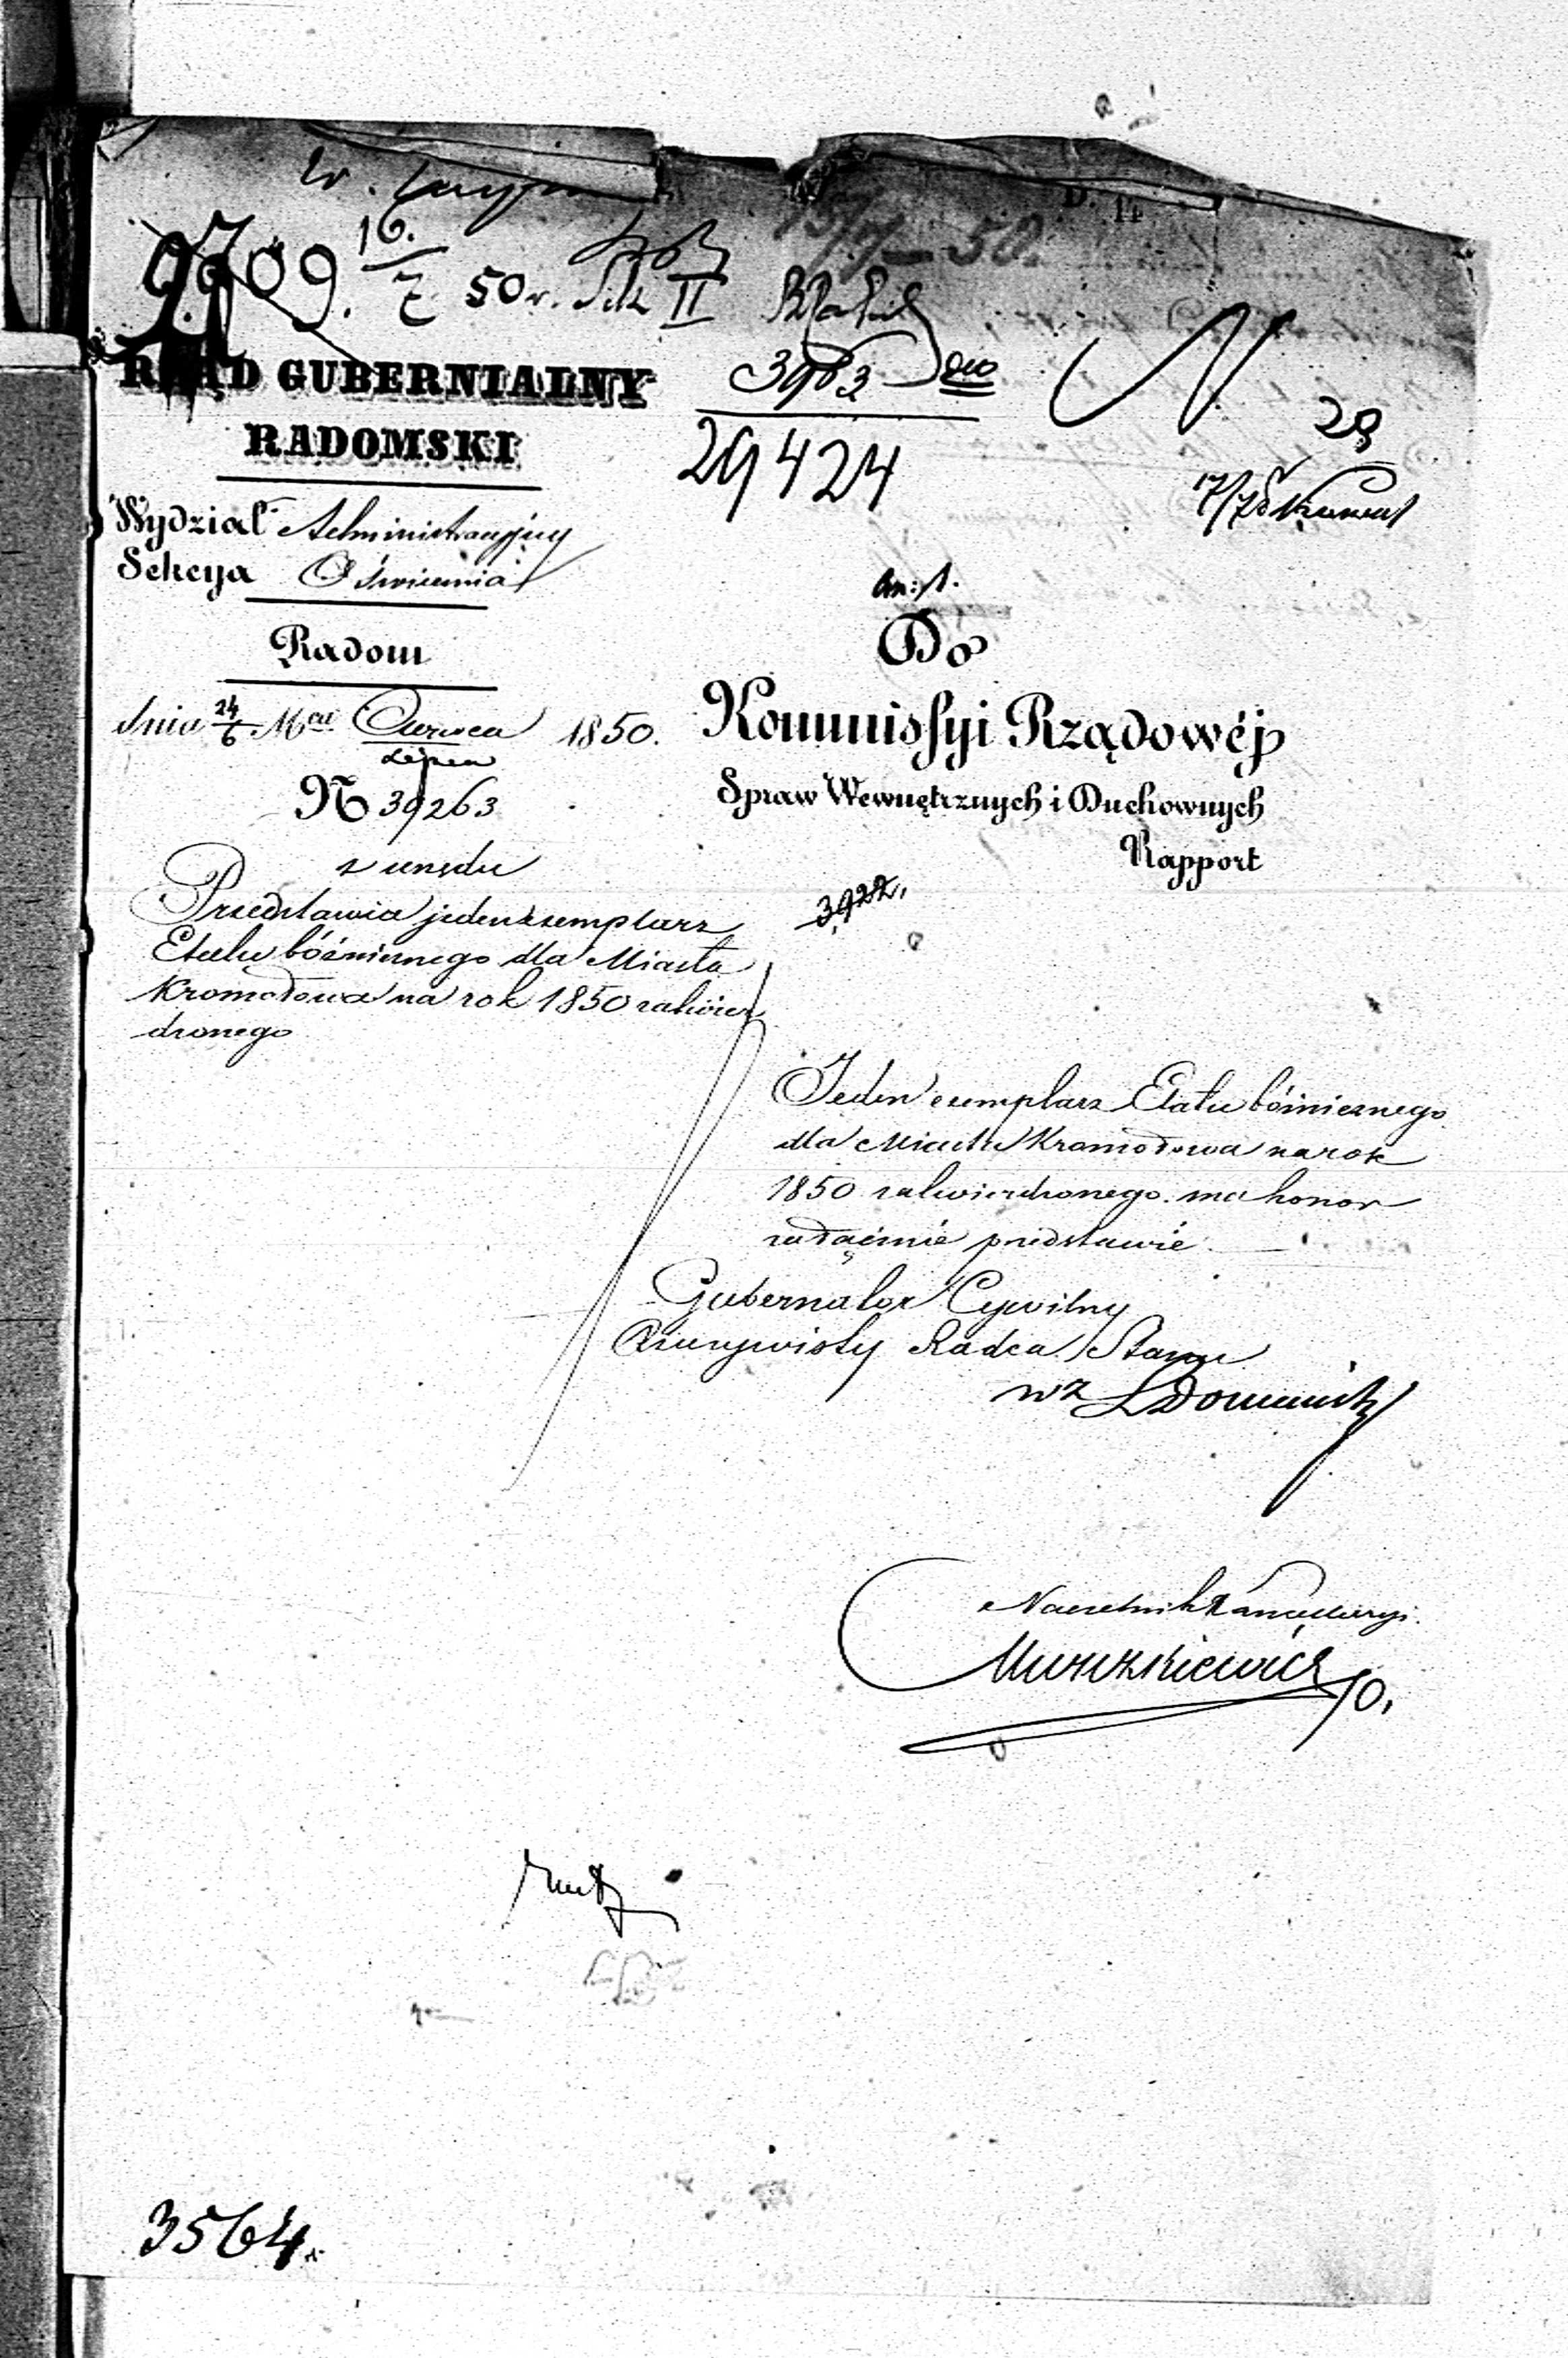 9709. 16./7 50 r. II
3983
29424
29
17/7
RZĄD GUBERNIALNY
RADOMSKI
Wydział Administracyjny
Sekcya Oświecenia
Radom
dnia 24/6 Mca Czerwca/Lipca 1850.
N 39263
z urzędu
Przedstawia jeden exemplarz
Etatu bóżnicznego dla Miasta
Kromołowa na rok 1850 zatwier
dzonego
an: 1.
Do
Kommissyi Rządowéj
Spraw Wewnętrznych i Duchownych
Rapport
3922.
Jeden exemplarz Etatu bóżnicznego
dla Miasta Kromołowa na rok
1850 zatwierdzonego. ma honor
załącznie przedstawić.
Gubernator Cywilny
Rzeczywisty Radca Stanu
wz
Naczelnik Kancellaryi.
3564.